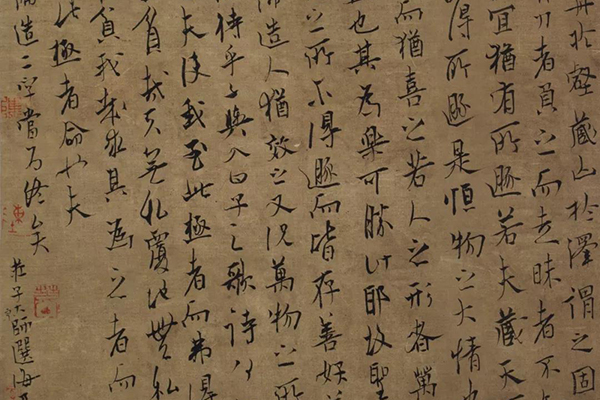 舟於壑藏山於澤謂之固
力者負之而走昧者不
宜猶有所遯若夫藏天
得所遯是恒物之大情也
而猶喜之若人之形者萬
也其為樂可勝計耶故聖
之所不得遯而皆存善妖
造人猶效之又況萬物之所
待乎子輿入曰子之歌詩何
夫使我至此極者而弗得
貧哉天無私覆地無私
貧我哉求其為之者而
此極者命也夫
造二字當為終矣
莊子宗師選海